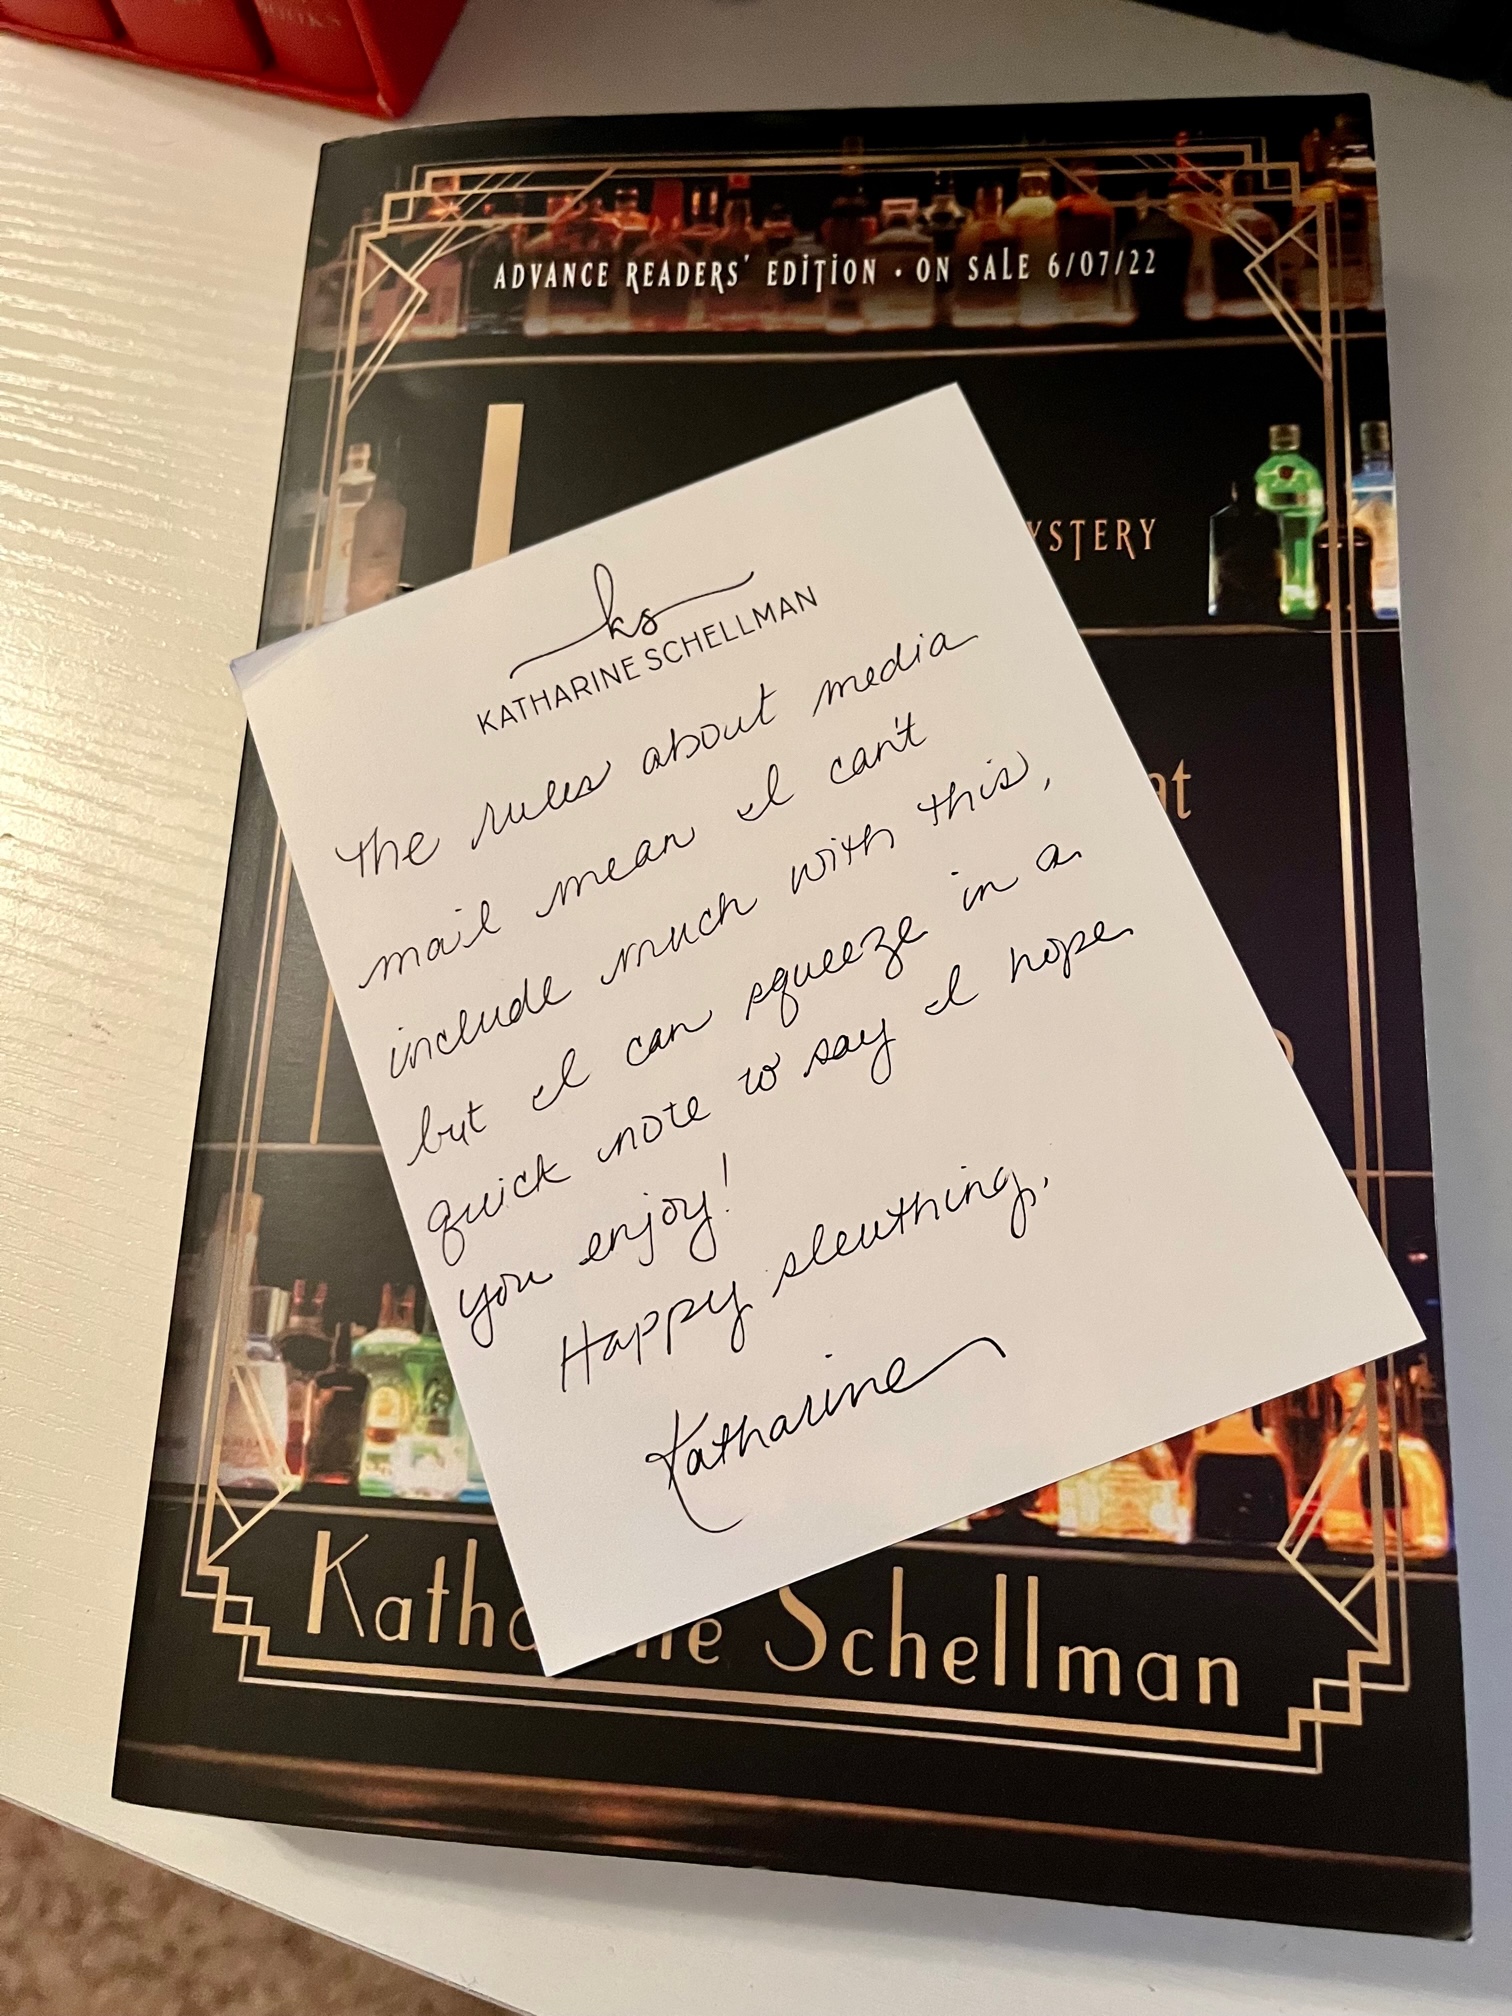 ADVANCE READERS' EDITION • ON SALE 6/07/22
YSTERY
at
ks
KATHARINE SCHELLMAN
The rules about media
mail mean I can't
include much with this,
but I can squeeze in a
quick note to say I hope
you enjoy!
Happy sleuthing,
Katharine
Katha ne Schellman